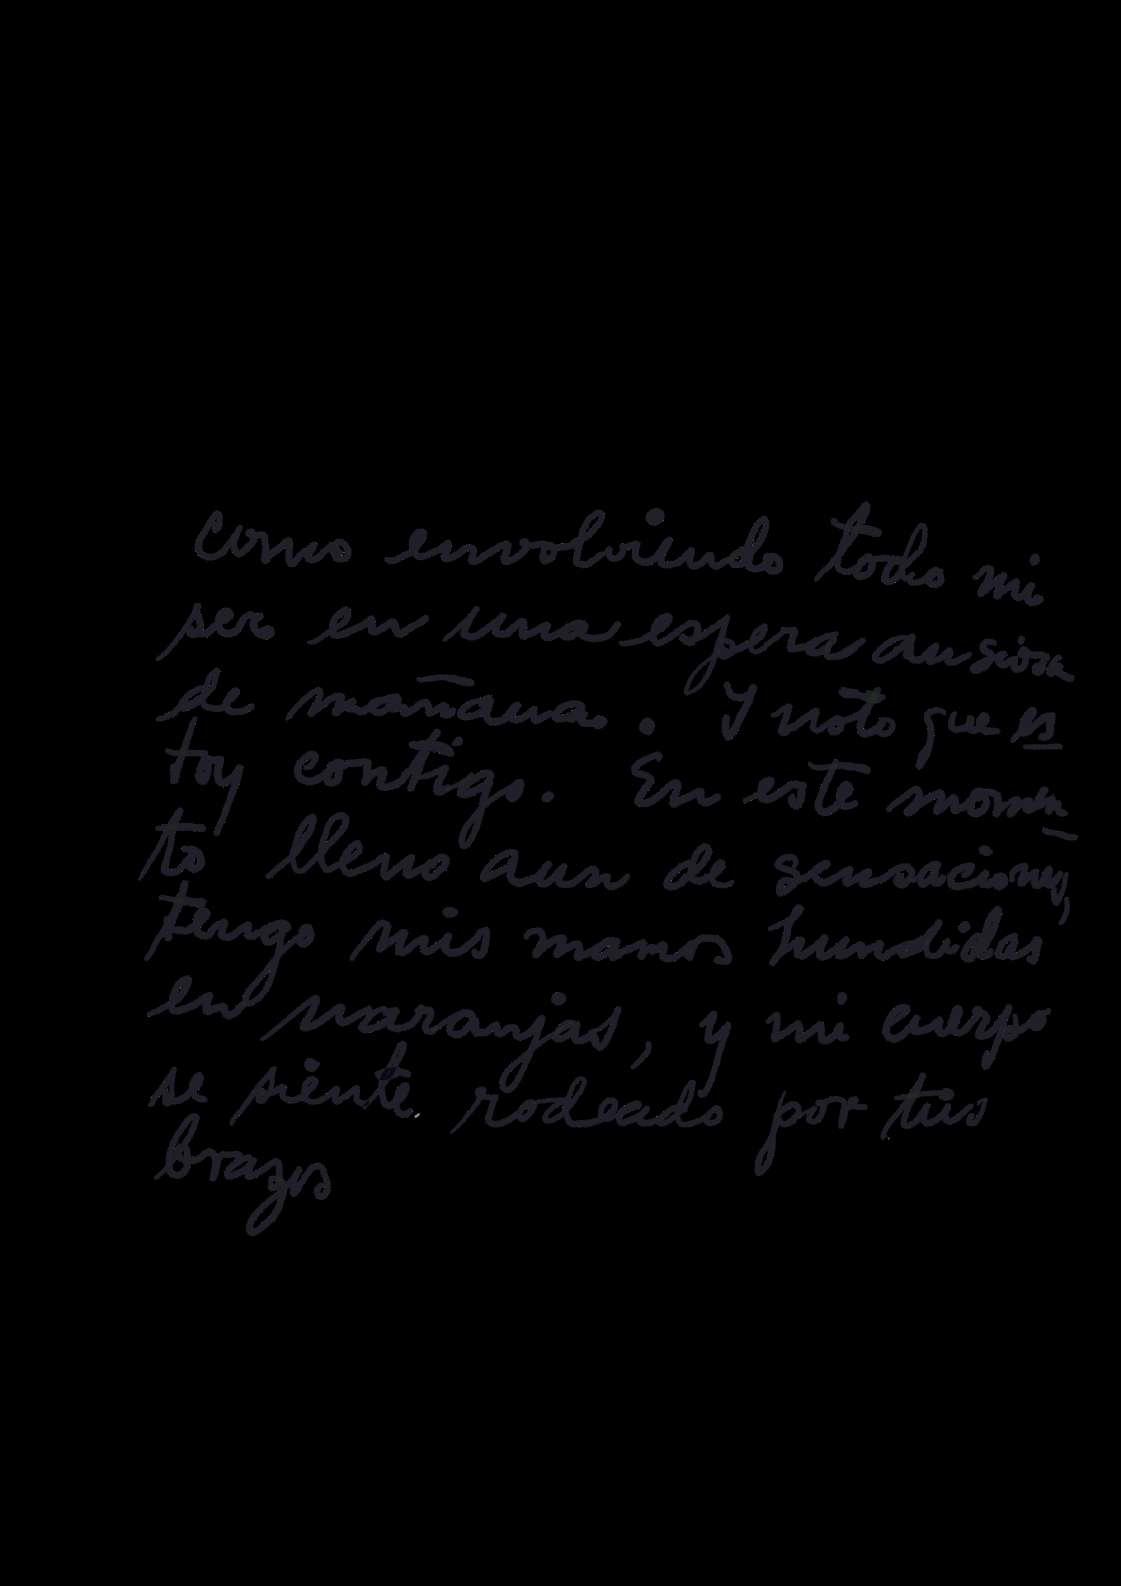 como envolviendo todo mi
ser en una espera ansiosa
de mañana. Y noto que es
toy contigo. En este momen
to lleno aun de sensaciones,
tengo mis manos hundidas
en naranjas, y mi cuerpo
se siente rodeado por tus
brazos